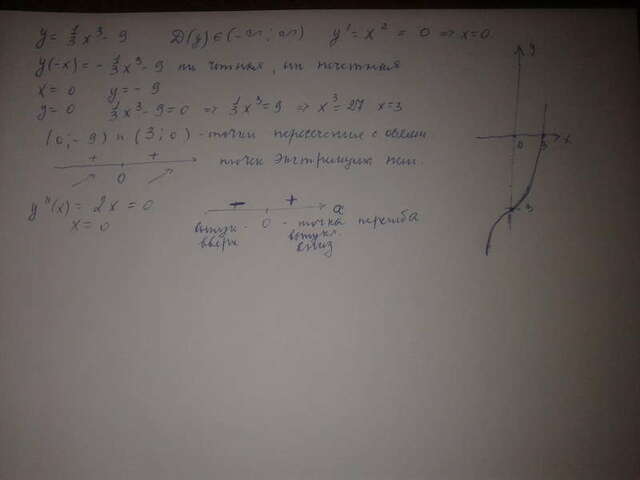 y = 1/3 x³ - 9 D(y) ∈ (-∞; ∞) y' = x² = 0 ⇒ x=0
y(-x) = - 1/3 x³ - 9 ни четная, ни нечетная
x = 0 y = - 9
y = 0 1/3 x³ - 9 = 0 ⇒ 1/3 x³ = 9 ⇒ x³ = 27 x=3
(0; -9) и (3; 0) - точки пересечение с осями
+ + точек экстремума нет.
0
y''(x) = 2x = 0
x = 0
- + x
0 - точка перегиба
выпук. вверх
выпукл. вниз
y
0 3 x